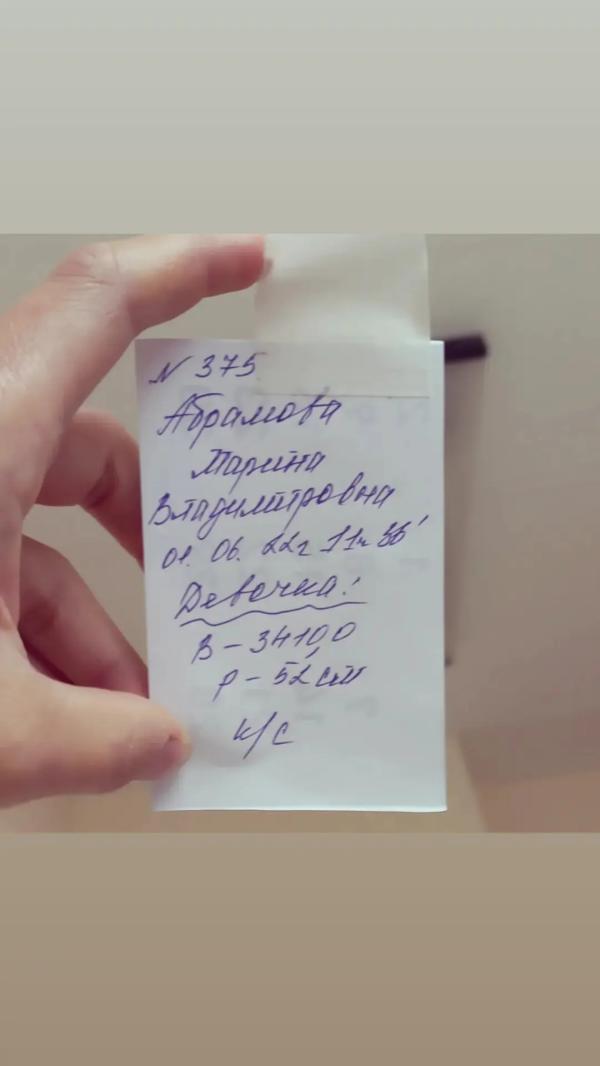 N 375
Абрамова
Марина
Владимировна
01. 06. 22г 11ч 35'
Девочка!
В – 3410,0
р – 52 см
к/с